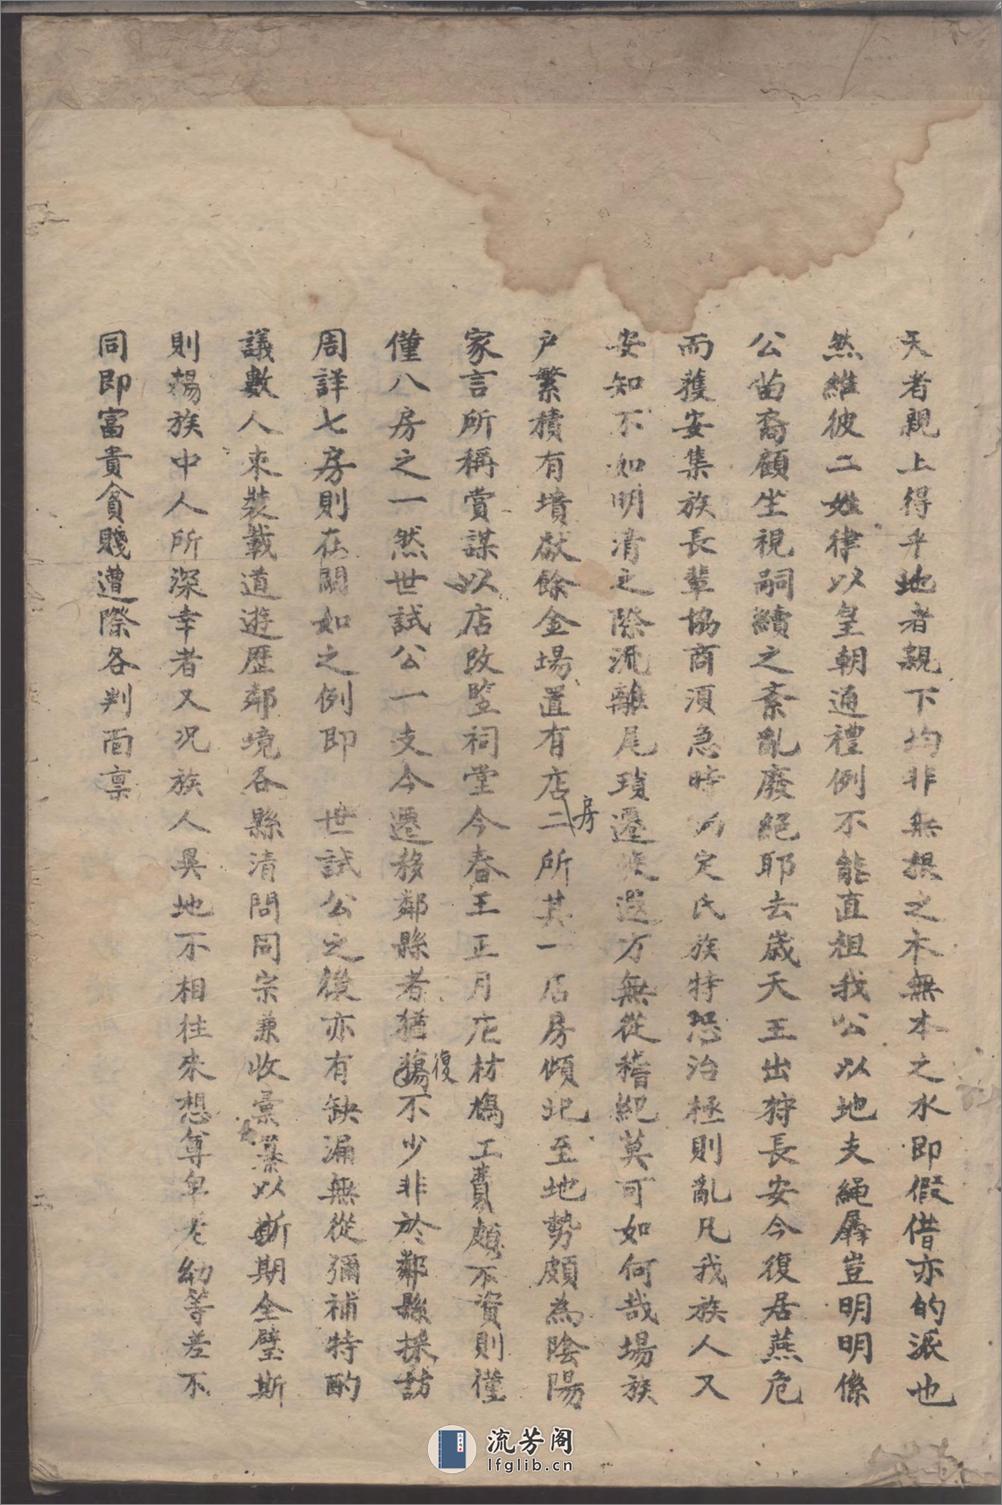 天者親上得乎地者親下均非無根之木無本之水即假借亦的派也
然維彼二姓律以皇朝通禮例不能直祖我公以地支繩孱豈明明係
公苗裔顧坐視嗣續之紊亂廢絕耶去歲天王出狩長安今復居燕危
而獲安集族長輩協商須急時 定氏族特恐治極則亂凡我族人又
安知不如明清之際流離尾瑣遷 遐方無從稽紀莫可如何哉場族
户繁積有墳 餘金場置有店房二所其一店房傾圯至地勢頗為陰陽
家言所稱賞謀以店改監祠堂今春王正月庀材鳩工費頗不資則僅
僅八房之一然世試公一支今遷移鄰縣者猶復不少非於鄰縣採訪
周詳七房則在闕如之例即 世試公之後亦有缺漏無從彌補特酌
議數人束裝載道遊歷鄰境各縣清問同宗兼收彙 以斯期全璧斯
則場族中人所深幸者又况族人異地不相往來想尊卑老幼等差不
同即富貴貧賤遭際各判面禀
流芳阁
lfglib.cn